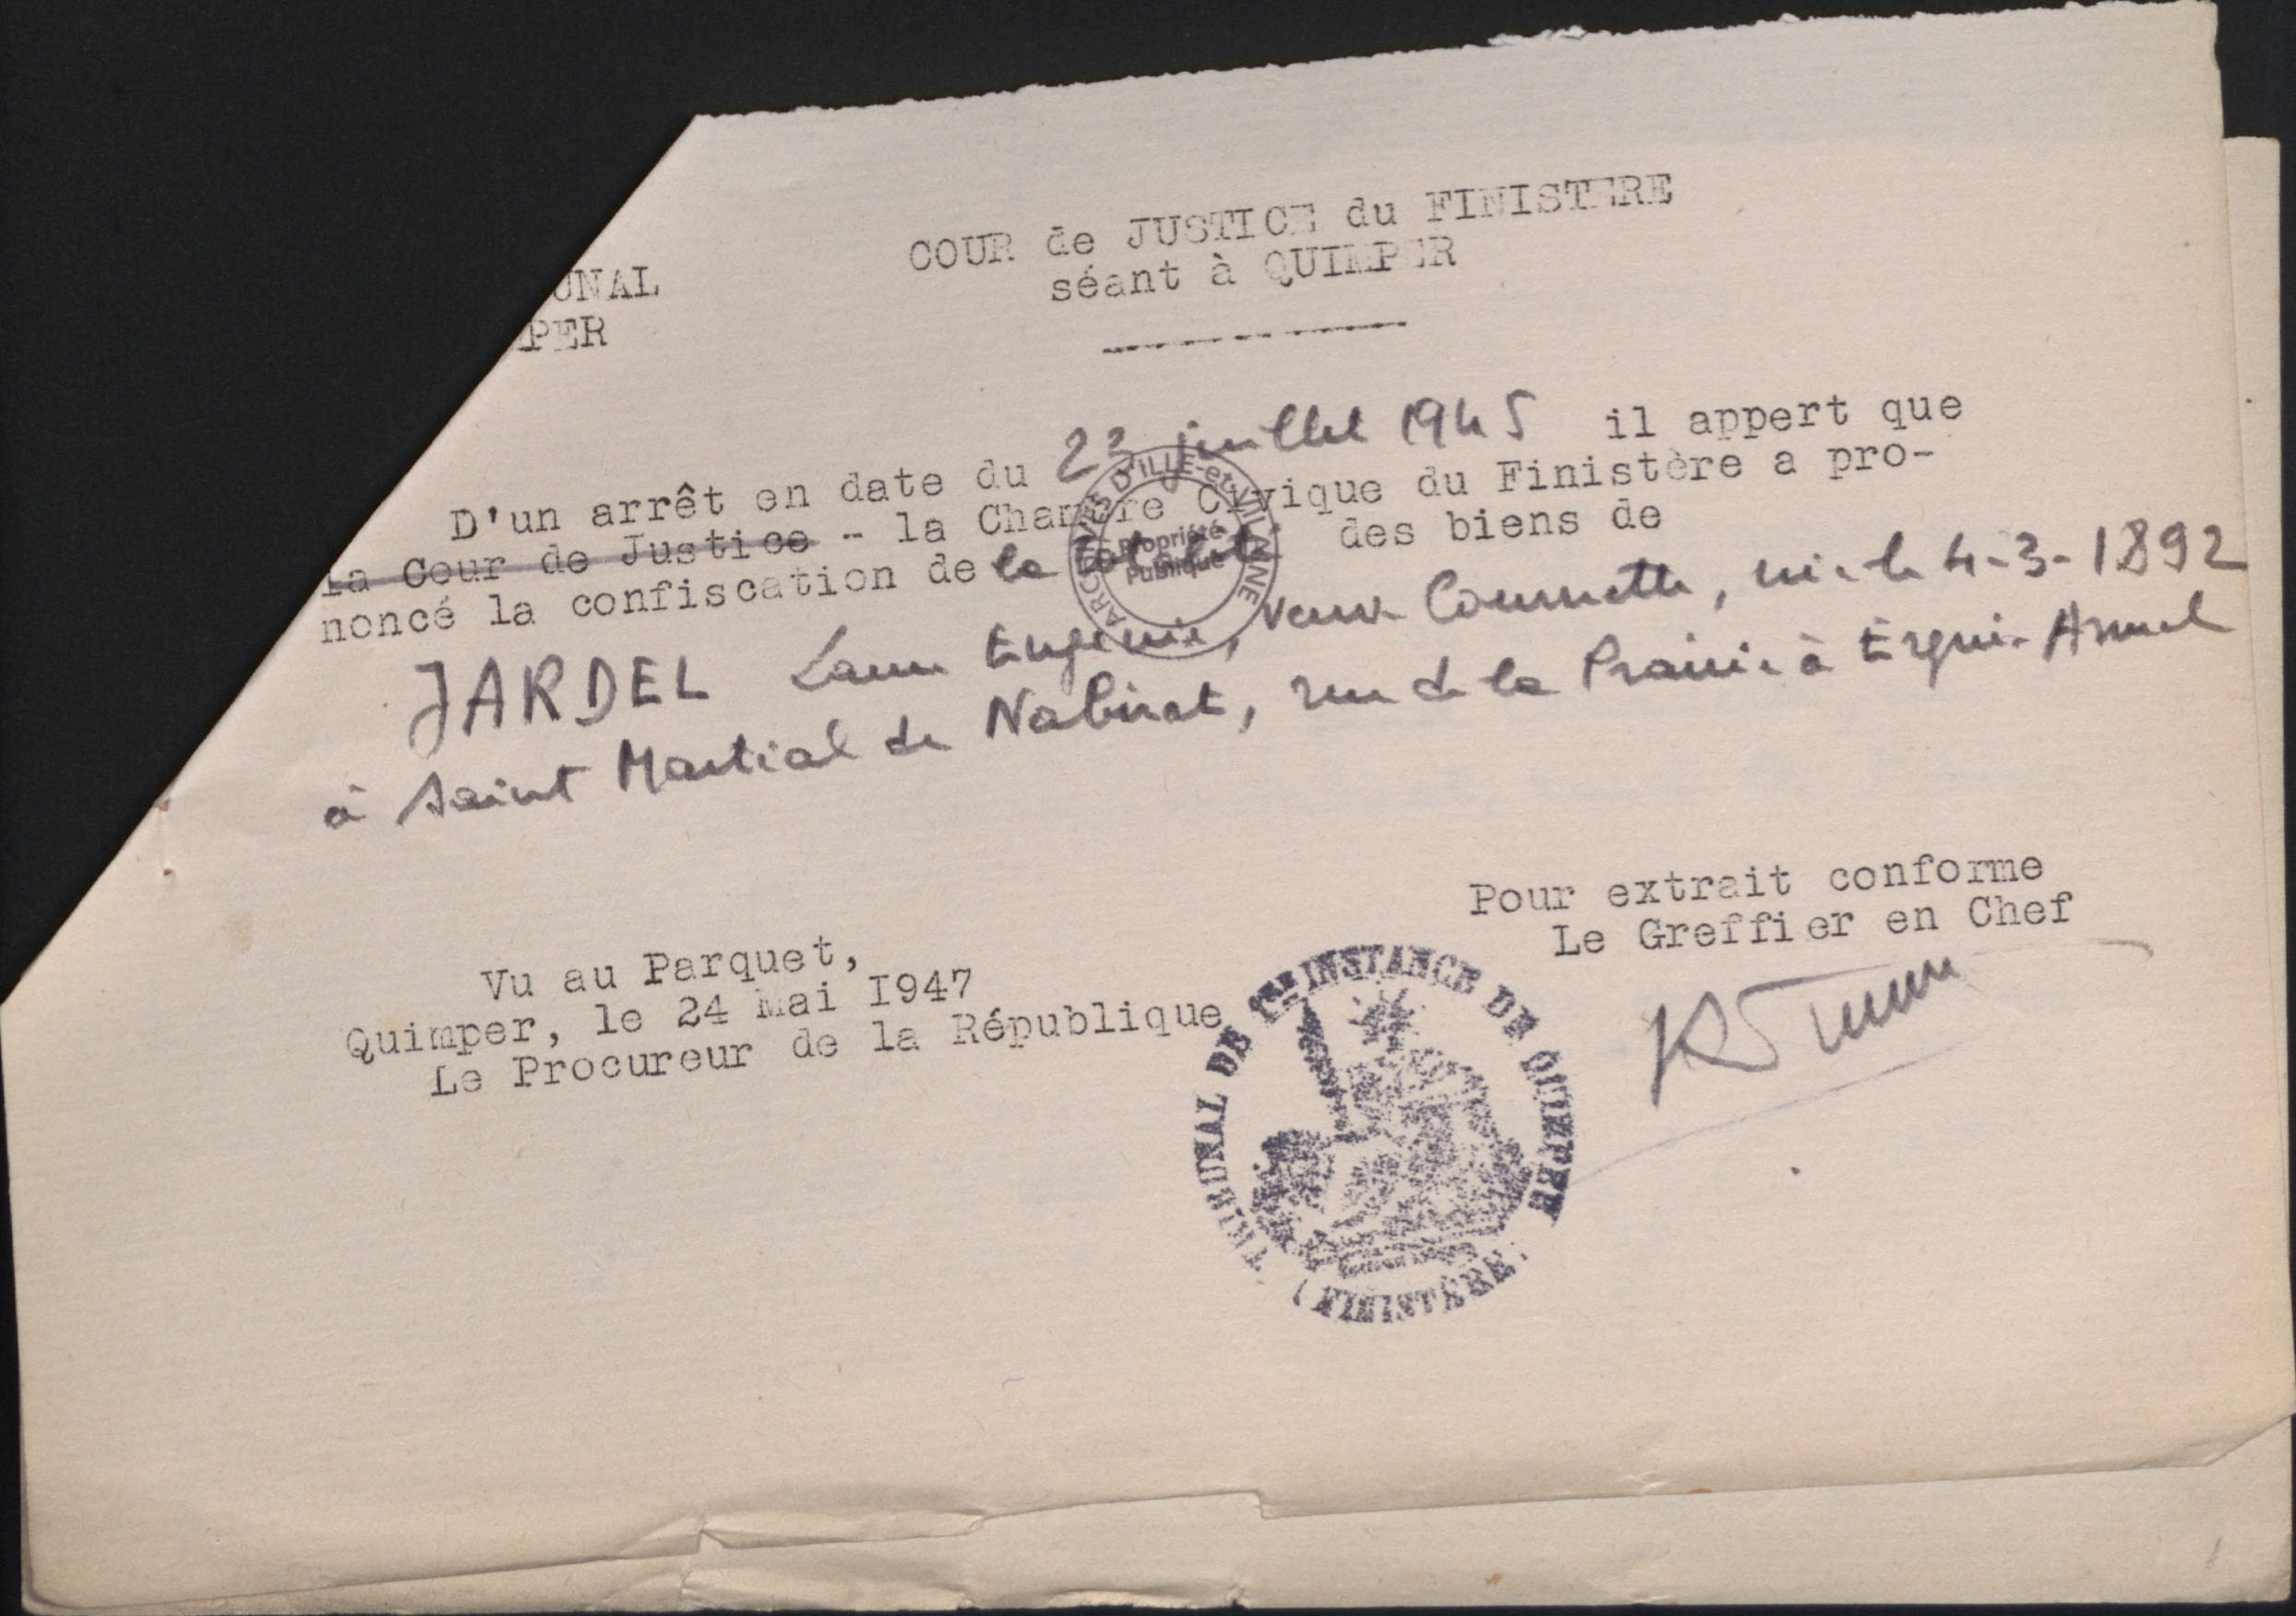 COUR de JUSTICE du FINISTERE
séant à QUIMPER
UNAL
PER
D'un arrêt en date du 23 juillet 1945 il appert que
la Cour de Justice - la Chambre Civique du Finistère a pro-
noncé la confiscation de la totalité des biens de
JARDEL Laure Eugénie, veuve née le 4-3-1892
à Saint Martial de Nabirat, rue de la Prairie à Ergué-Armel
Pour extrait conforme
Le Greffier en Chef
Vu au Parquet,
Quimper, le 24 Mai 1947
Le Procureur de la République
ARCHIVES D'ILLE-et-VILAINE
Propriété
Publique
TRIBUNAL DE 1ERE INSTANCE DE QUIMPER
(FINISTÈRE)